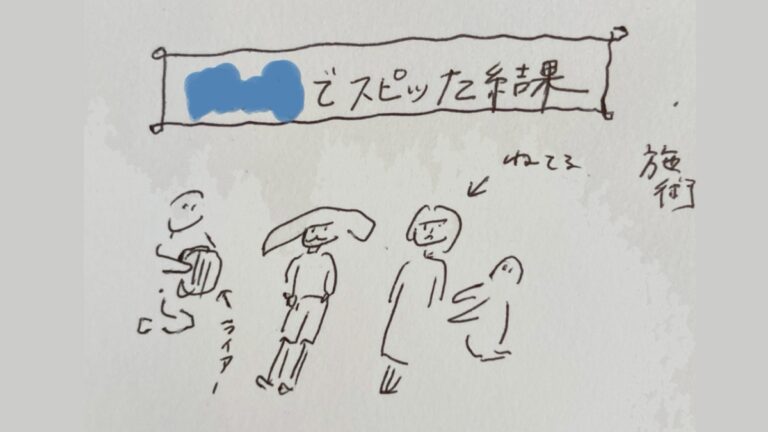 でスピッた結果
ねてる
施術
ライアー